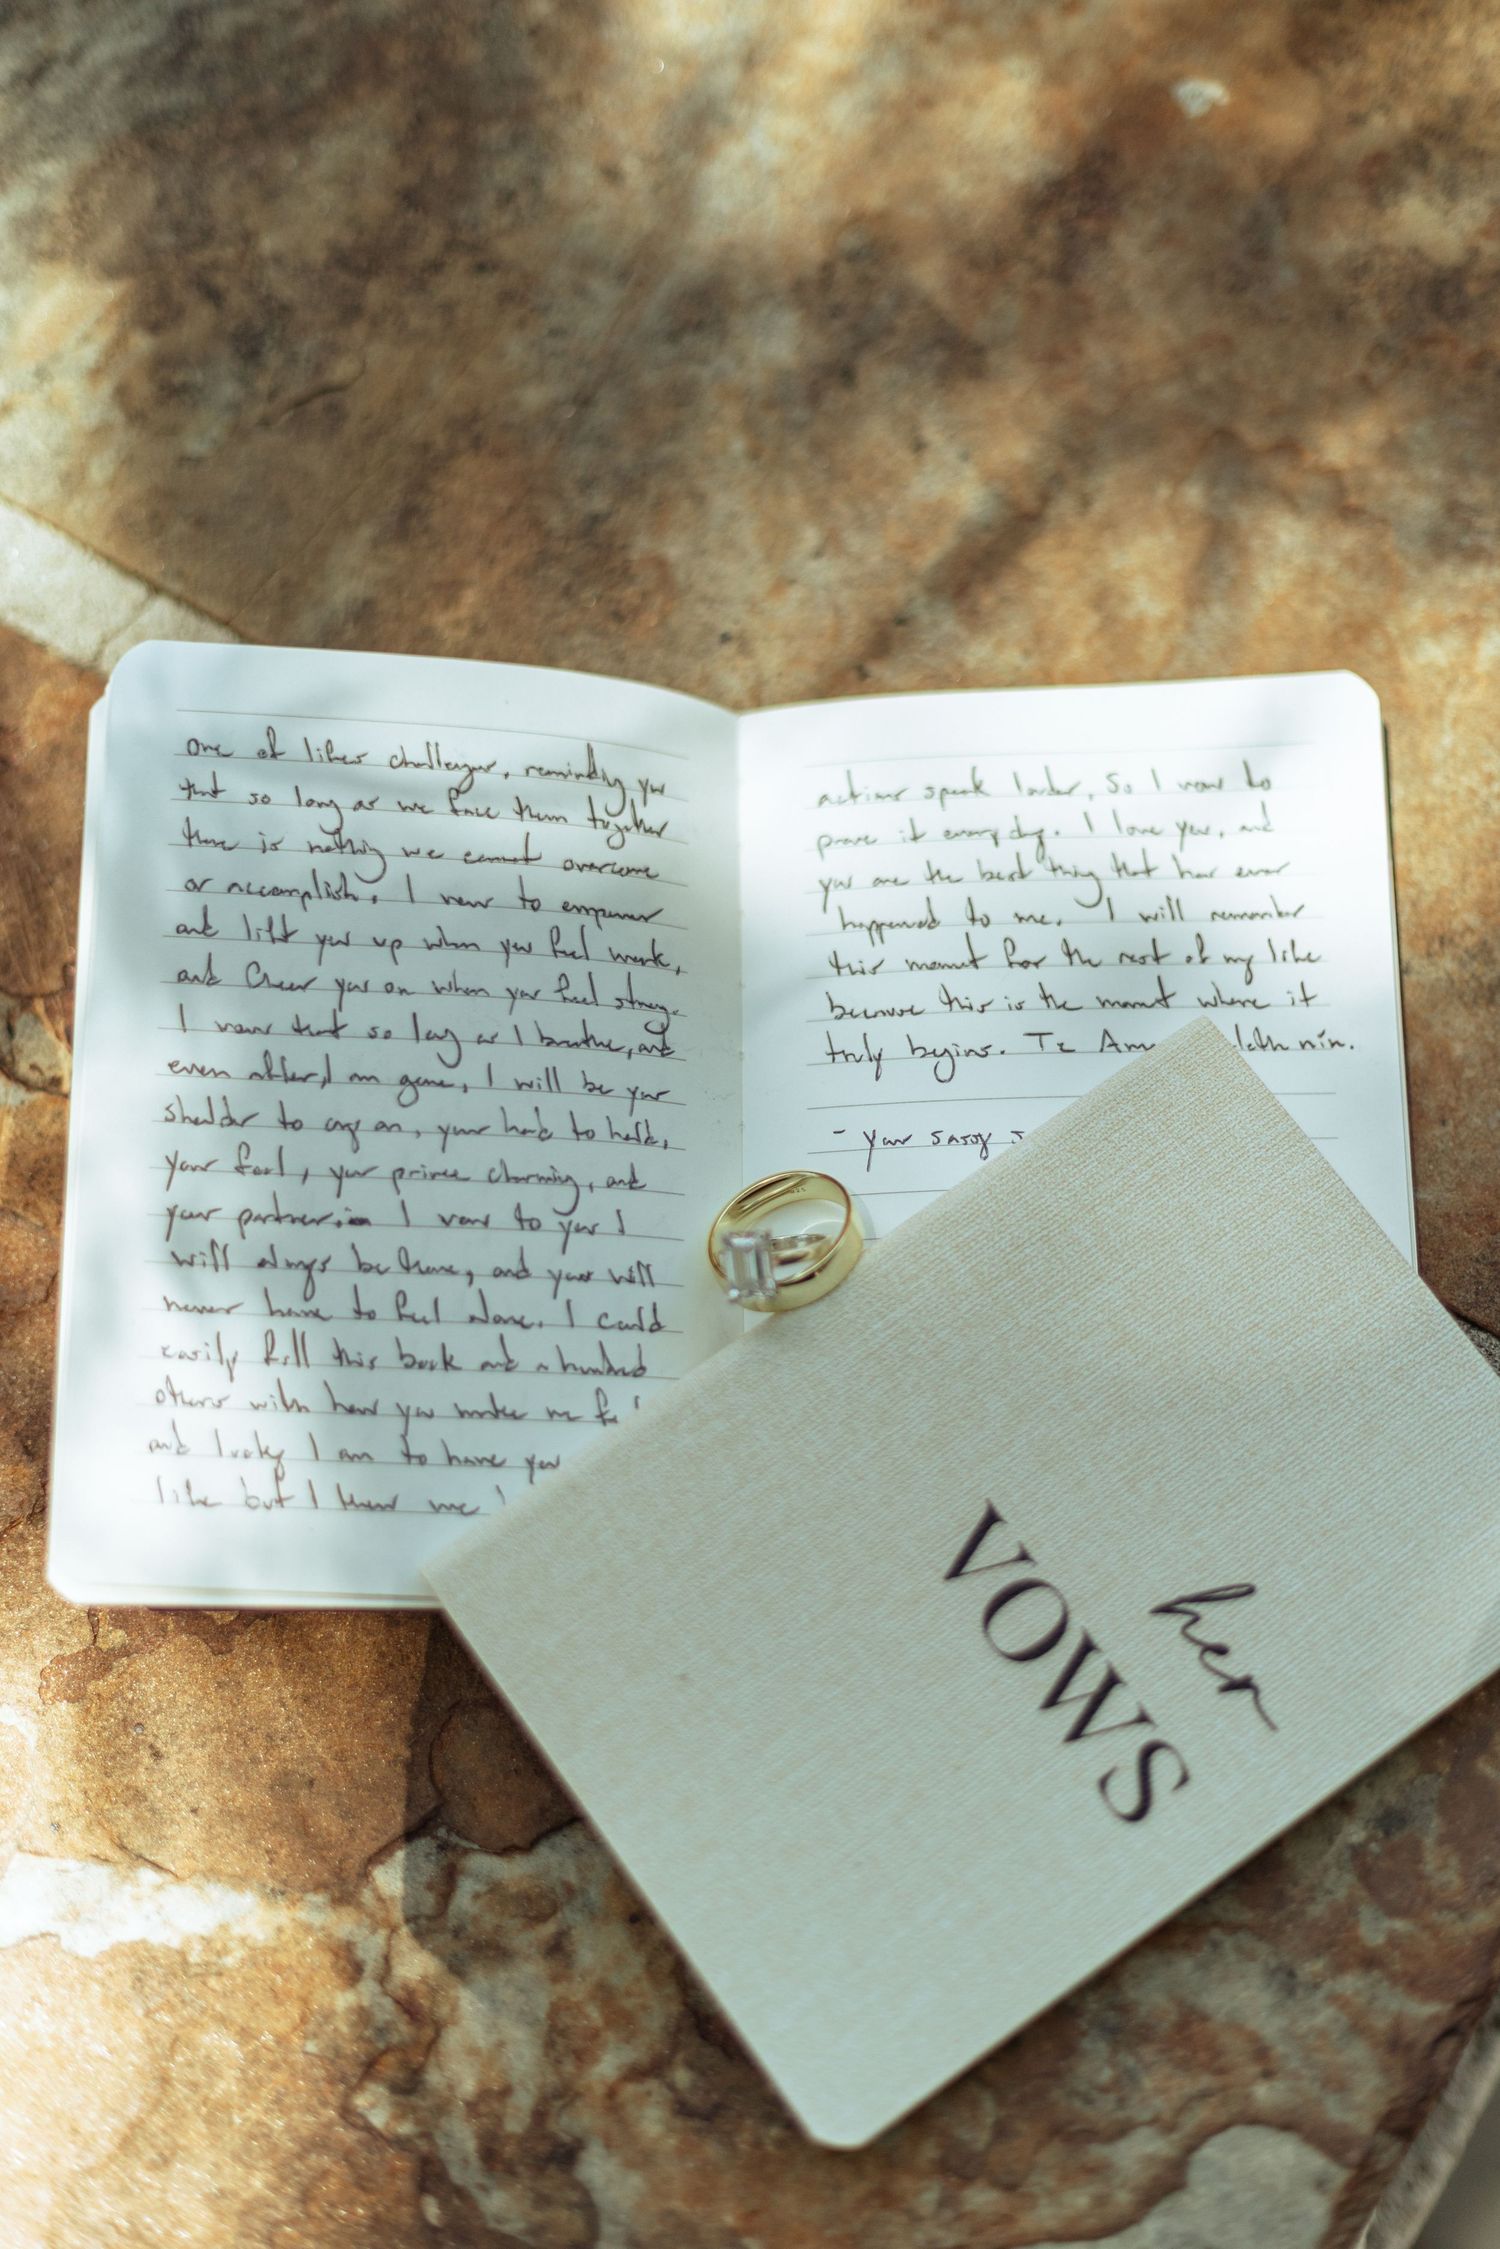 one of lifes challenges, reminding you
that so long as we face them together
there is nothing we cannot overcome
or accomplish. I vow to empower
and lift you up when you feel weak,
and Cheer you on when you feel strong.
I vow that so long as I breathe, and
even after I am gone, I will be your
shoulder to cry on, your hand to hold,
your fool, your prince charming, and
your partner. I vow to you I
will always be there, and you will
never have to feel alone. I could
easily fill this book and a hundred
others with how you make me
and lucky I am to have you
life but I know me
actions speak louder. So I vow to
prove it every day. I love you, and
you are the best thing that has ever
happened to me. I will remember
this moment for the rest of my life
because this is the moment where it
truly begins. Te
- your sassy
her
VOWS